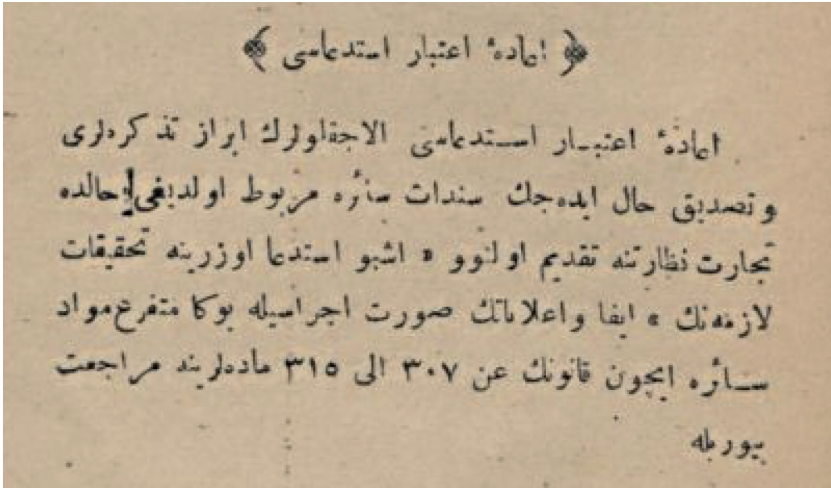 ﴿ اعادهٔ اعتبار استدعاسی ﴾
اعادهٔ اعتبار استدعاسی الاجقلولرك ابراز تذكره‌لری
و تصدیق حال ایده‌جك سندات سائره مربوط اولدیغی حالده
تجارت نظارتنه تقدیم اولنوو « اشبو استدعا اوزرینه تحقیقات
لازمه‌نك » ایفا واعلاناتك صورت اجراسیله بوكا متفرع مواد
سائره ایچون قانونك عن ٣٠٧ الی ٣١٥ ماده‌لرینه مراجعت
بیوریله